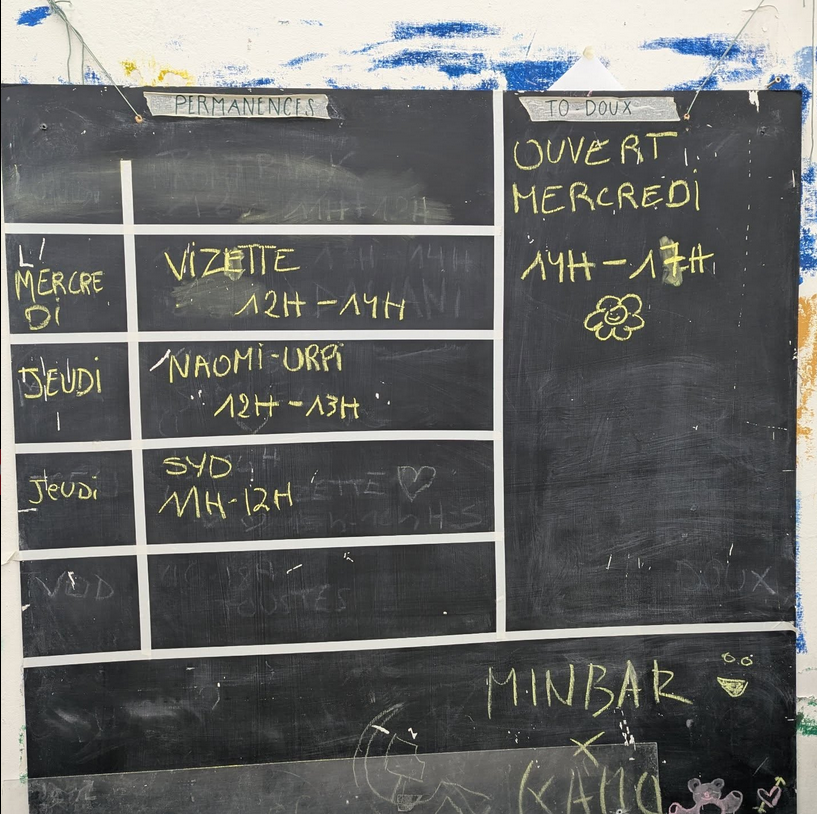 PERMANENCES
TO-DOUX
OUVERT
MERCREDI
14H-17H
MERCRE
DI
VIZETTE
12H-14H
JEUDI
NAOMI-URPI
12H-13H
JEUDI
SYD
11H-12H
DOUX
MINBAR
X